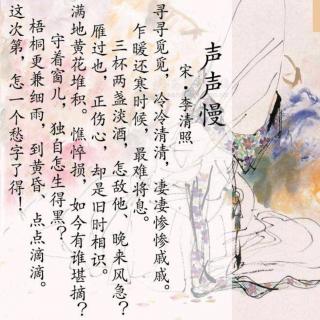 声声慢
宋·李清照
寻寻觅觅，冷冷清清，凄凄惨惨戚戚。
乍暖还寒时候，最难将息。
三杯两盏淡酒，怎敌他、晚来风急？
雁过也，正伤心，却是旧时相识。
满地黄花堆积。憔悴损，如今有谁堪摘？
守着窗儿，独自怎生得黑？
梧桐更兼细雨，到黄昏、点点滴滴。
这次第，怎一个愁字了得！